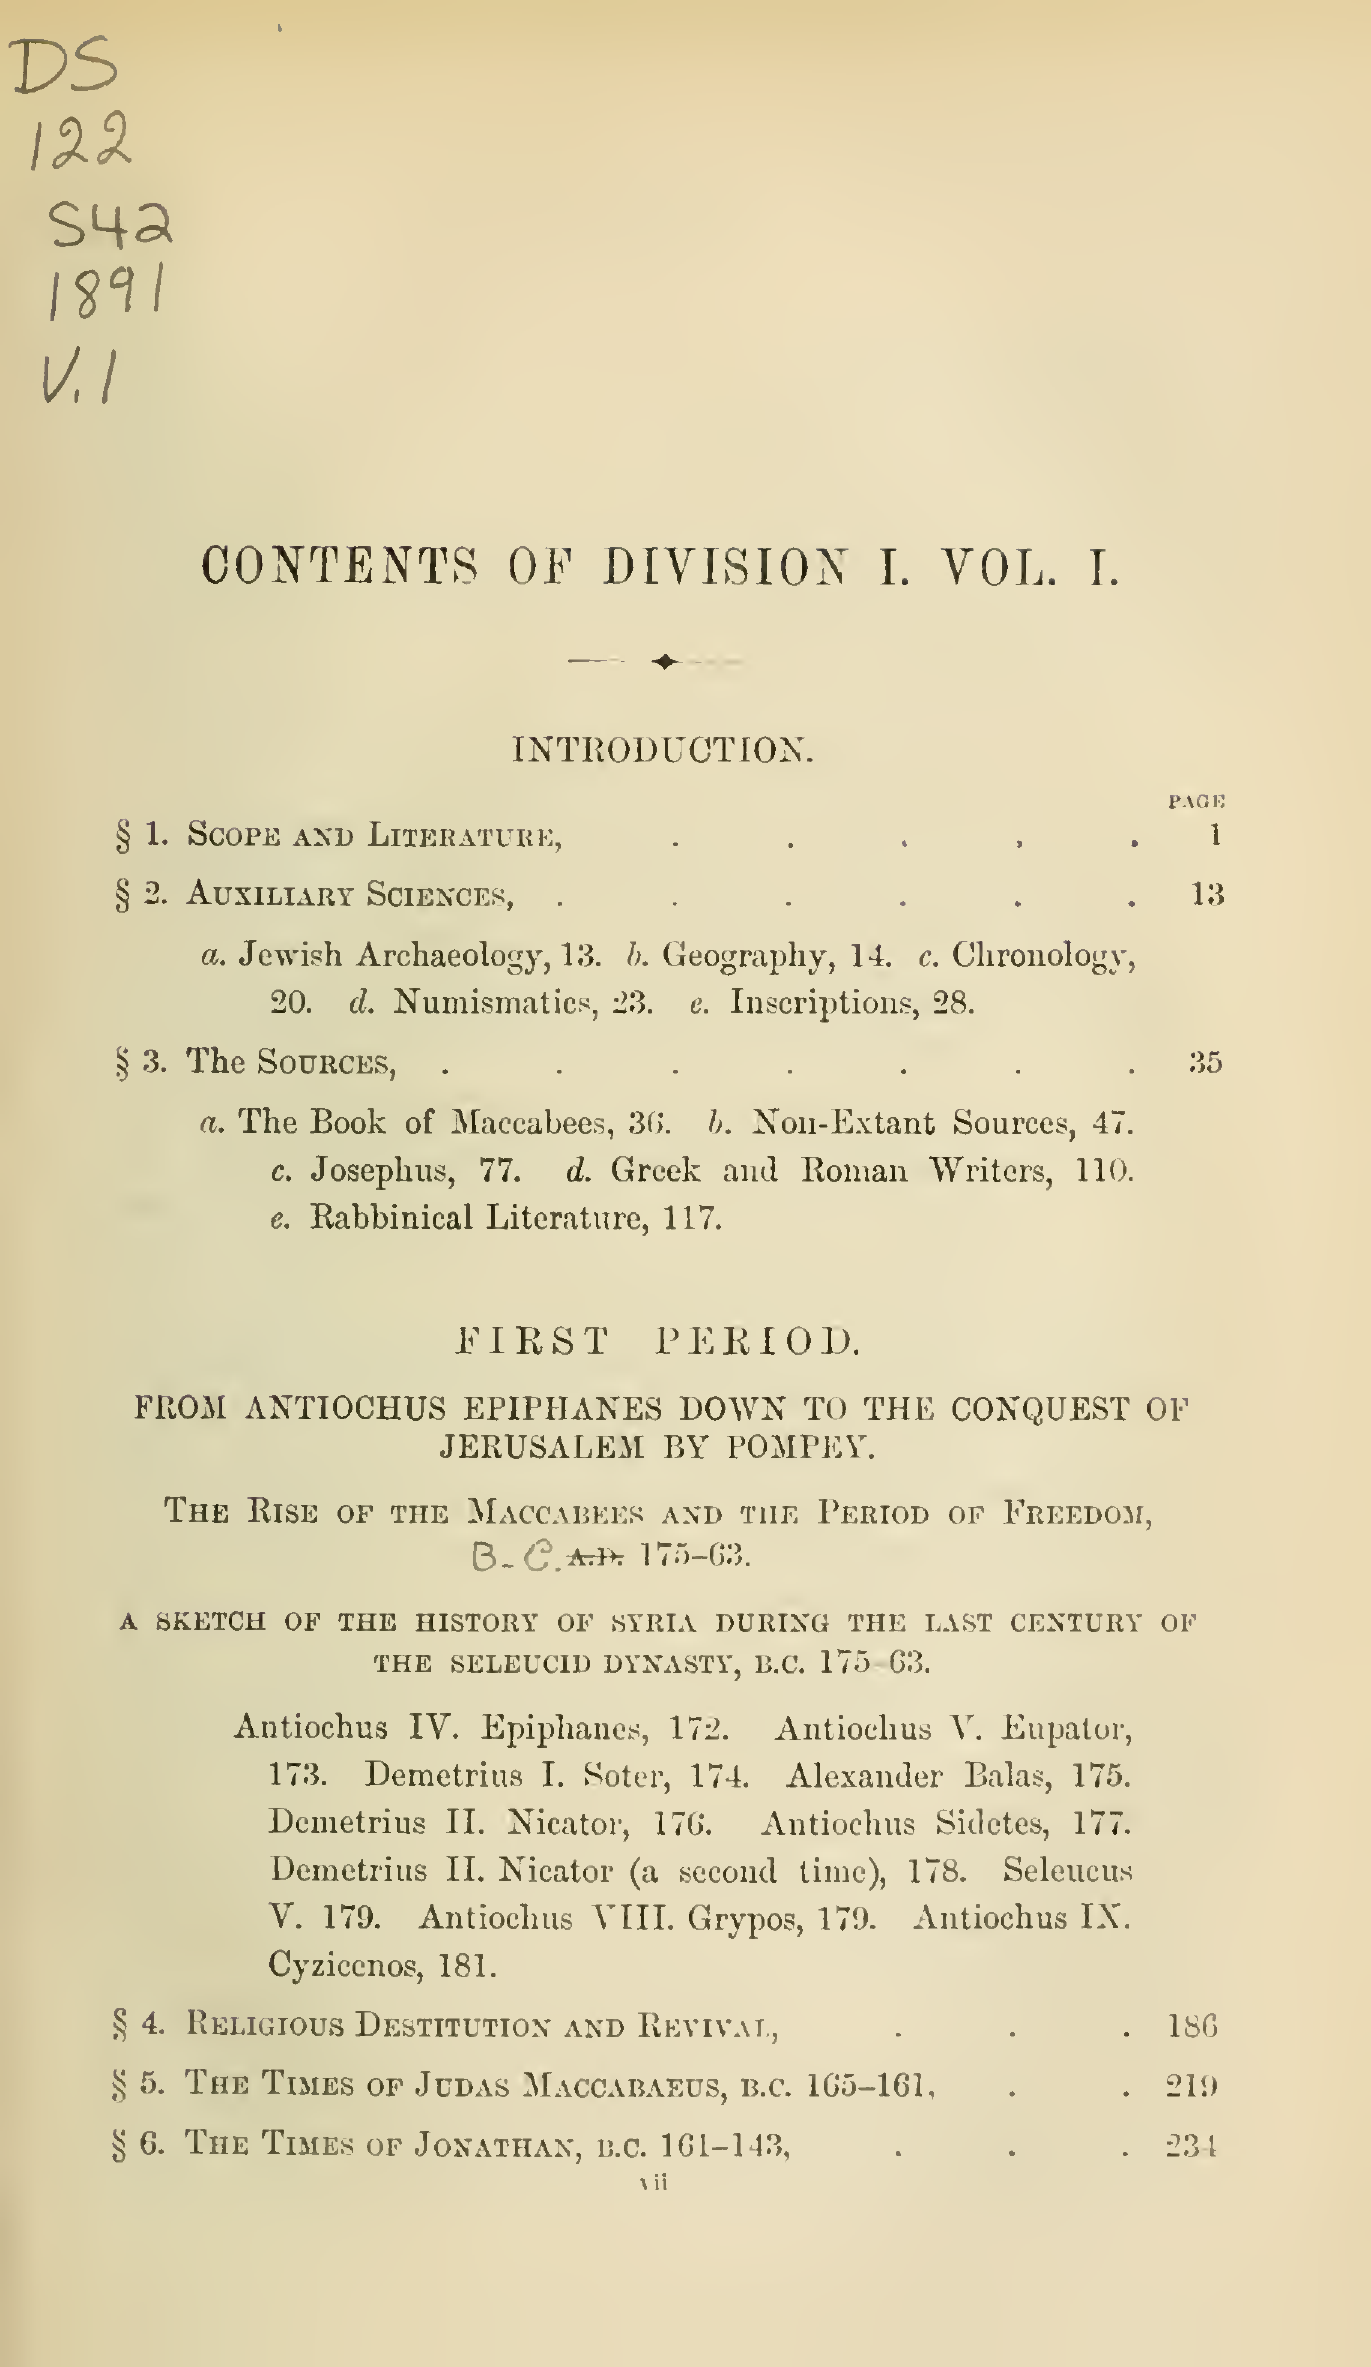 DS
122
S42
1891
V.1
CONTENTS OF DIVISION I. VOL. I.
INTRODUCTION.
PAGE
§ 1. SCOPE AND LITERATURE, . . . . . 1
§ 2. AUXILIARY SCIENCES, . . . . . . 13
a. Jewish Archaeology, 13. b. Geography, 14. c. Chronology,
20. d. Numismatics, 23. e. Inscriptions, 28.
§ 3. The SOURCES, . . . . . . . 35
a. The Book of Maccabees, 36. b. Non-Extant Sources, 47.
c. Josephus, 77. d. Greek and Roman Writers, 110.
e. Rabbinical Literature, 117.
FIRST PERIOD.
FROM ANTIOCHUS EPIPHANES DOWN TO THE CONQUEST OF
JERUSALEM BY POMPEY.
THE RISE OF THE MACCABEES AND THE PERIOD OF FREEDOM,
B.C. A.D. 175–63.
A SKETCH OF THE HISTORY OF SYRIA DURING THE LAST CENTURY OF
THE SELEUCID DYNASTY, B.C. 175–63.
Antiochus IV. Epiphanes, 172. Antiochus V. Eupator,
173. Demetrius I. Soter, 174. Alexander Balas, 175.
Demetrius II. Nicator, 176. Antiochus Sidetes, 177.
Demetrius II. Nicator (a second time), 178. Seleucus
V. 179. Antiochus VIII. Grypos, 179. Antiochus IX.
Cyzicenos, 181.
§ 4. RELIGIOUS DESTITUTION AND REVIVAL, . . . 186
§ 5. THE TIMES OF JUDAS MACCABAEUS, B.C. 165–161, . . 219
§ 6. THE TIMES OF JONATHAN, B.C. 161–143, . . . 234
vii